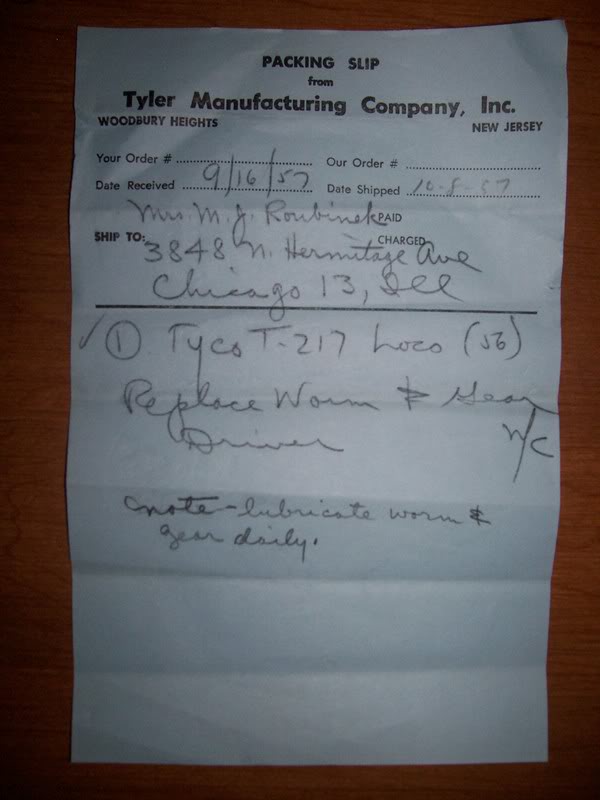 PACKING SLIP
from
Tyler Manufacturing Company, Inc.
WOODBURY HEIGHTS NEW JERSEY
Your Order # Our Order #
Date Received 9/16/57 Date Shipped 10-8-57
Mrs. M. J. Roubinek PAID
SHIP TO: 3848 N. Hermitage Ave CHARGED
Chicago 13, Ill
✓ ① Tyco T-217 Loco (56)
Replace Worm & Gear
Driver N/C
note-lubricate worm &
gear daily.